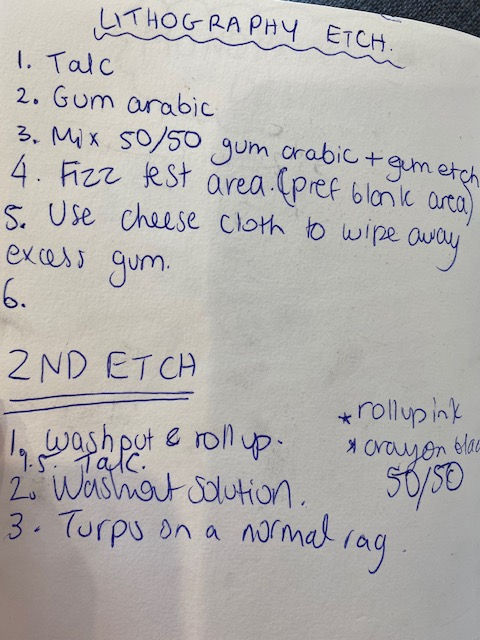 LITHOGRAPHY ETCH.
1. Talc
2. Gum arabic
3. Mix 50/50 gum arabic + gum etch
4. Fizz test area. (pref blank area)
5. Use cheese cloth to wipe away
excess gum.
6.
2ND ETCH
1. Washout & roll up.
1.5. Talc.
2. Washout solution.
3. Turps on a normal rag.
* rollup ink
* crayon
50/50